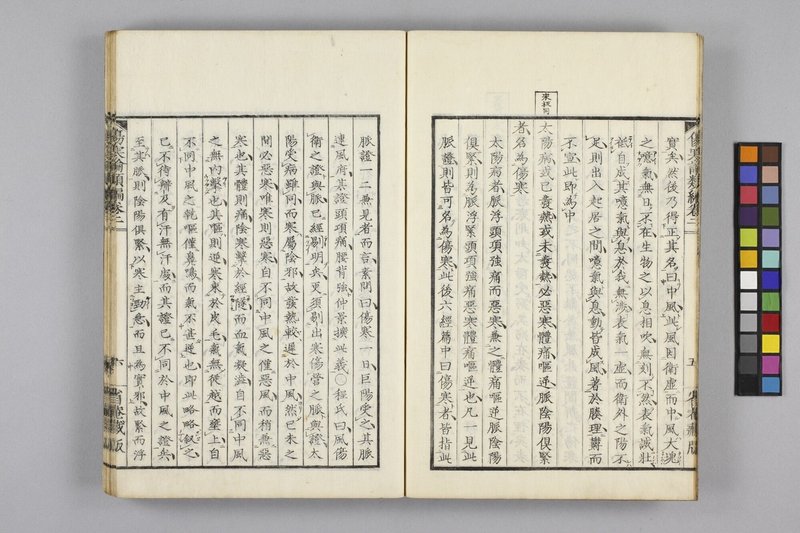 傷寒論類編卷二
五
實矣然後乃得正其名曰中風此風因衛虛而中風大塊
之噫氣無日不在生物之以息相吹無刻不然表氣誠壯
祗自成其噫氣與息於我無涉表氣一虛而衛外之陽不
足則出入起居之間噫氣與息動皆成風著於腠理鬱而
不宣此即為中
太陽病或已發熱或未發熱必惡寒體痛嘔逆脈陰陽俱緊
者名為傷寒
太陽病者脈浮頭項強痛而惡寒兼之體痛嘔逆脈陰陽
俱緊則為脈浮緊頭項強痛惡寒體痛嘔逆也凡一見此
脈證則皆可名為傷寒此後六經篇中曰傷寒者皆指此
脈證一二兼見者而言素問曰傷寒一日巨陽受之其脈
連風府某證頭項痛腰背強仲景據此義○程氏曰風傷
衛之證與脈已經剔明矣更須剔出寒傷營之脈與證太
陽受病雖同而寒屬陰邪故發熱較遲於中風然已未之
間必惡寒唯寒則惡寒自不同中風之僅惡風而稍兼惡
寒也其體則痛陰寒擊於經隧而血氣凝澁自不同中風
之無內擊也其嘔則逆寒束於皮毛氣無從越而壅上自
不同中風之乾嘔僅鼻鳴而氣不甚逆也即此略略叙之
已不待辨及有汗無汗處而其證已不同於中風之證矣
至其脈則陰陽俱緊以寒主勁急而且為實邪故緊而浮
傷寒論類編卷二
六